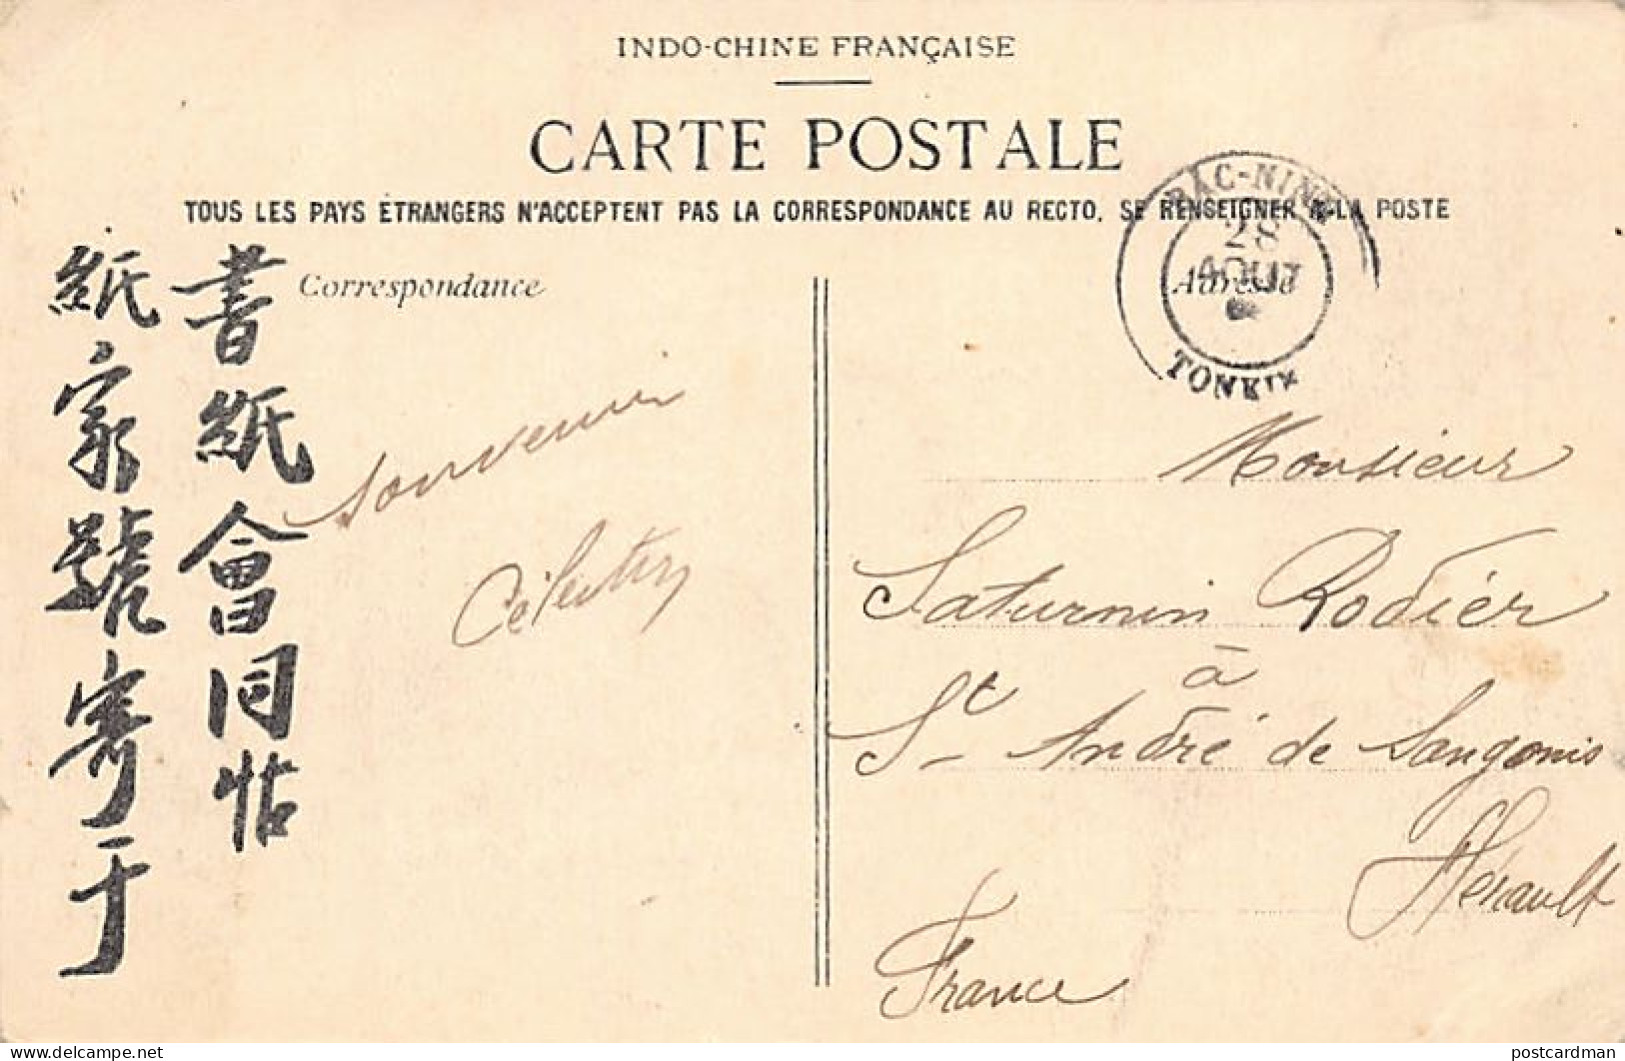 INDO-CHINE FRANÇAISE
CARTE POSTALE
TOUS LES PAYS ÉTRANGERS N'ACCEPTENT PAS LA CORRESPONDANCE AU RECTO. SE RENSEIGNER A LA POSTE
Correspondance
Adresse
BAC-NINH
28
AOUT
TONKIN
書紙會同帖
紙家號寄于
Souvenir
Monsieur
Saturnin Rodier
à
St André de Sangonis
Hérault
France
postcardman